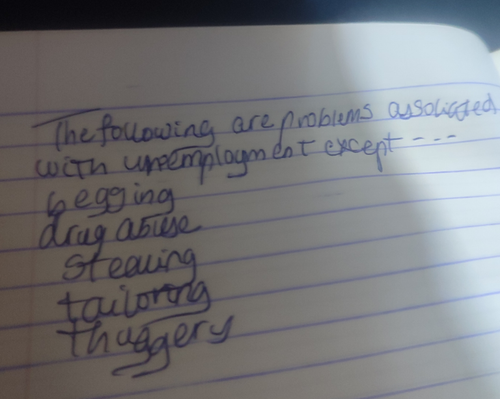 The following are problems associated
with unemployment except ---
begging
drug abuse
Stealing
tailoring
thuggery